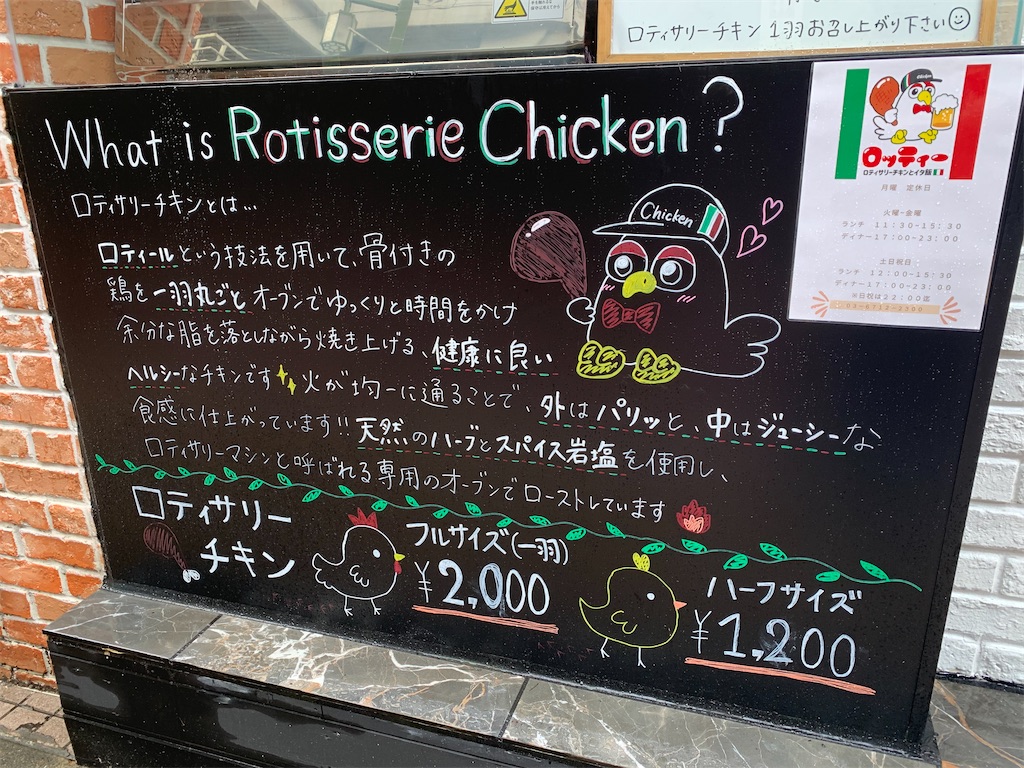 ロティサリーチキン 1羽お召し上がり下さい
What is Rotisserie Chicken?
ロティサリーチキンとは...
ロティールという技法を用いて、骨付きの
鶏を一羽丸ごとオーブンでゆっくりと時間をかけ
余分な脂を落としながら焼き上げる、健康に良い
ヘルシーなチキンです 火が均一に通ることで、外はパリッと、中はジューシーな
食感に仕上がっています!! 天然のハーブとスパイス岩塩を使用し、
ロティサリーマシンと呼ばれる専用のオーブンでローストしています
Chicken
ロティサリー
チキン
フルサイズ(一羽)
¥2,000
ハーフサイズ
¥1,200
ロッティー
ロティサリーチキンとイタ飯
月曜 定休日
火曜-金曜
ランチ 11:30-15:30
ディナー17:00-23:00
土日祝日
ランチ 12:00-15:30
ディナー17:00-23:00
※日祝は22:00迄